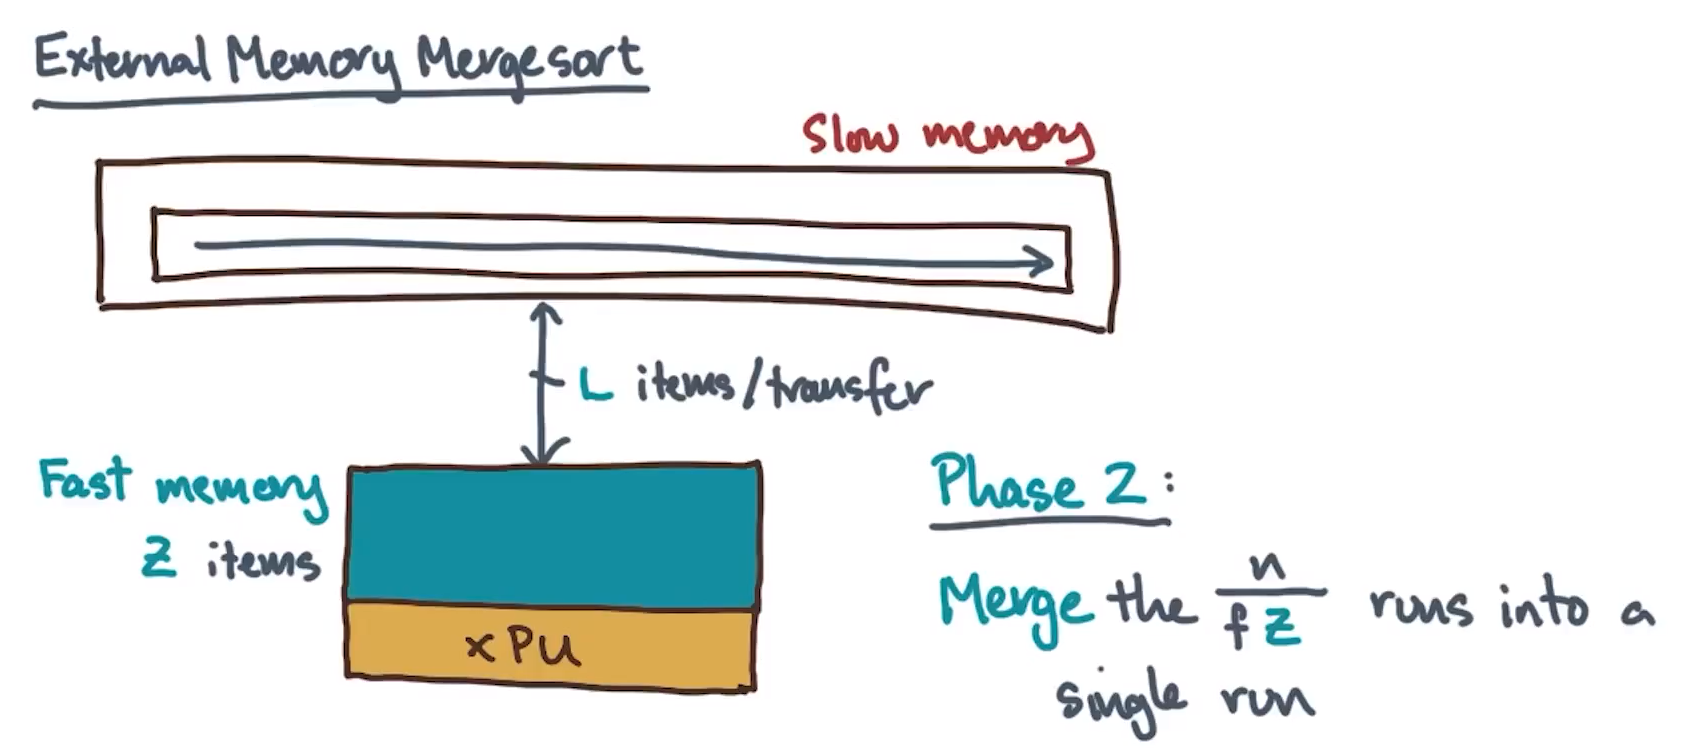 External Memory Mergesort
Slow memory
L items/transfer
Fast memory
Z items
xPU
Phase 2:
Merge the n/fZ runs into a
single run